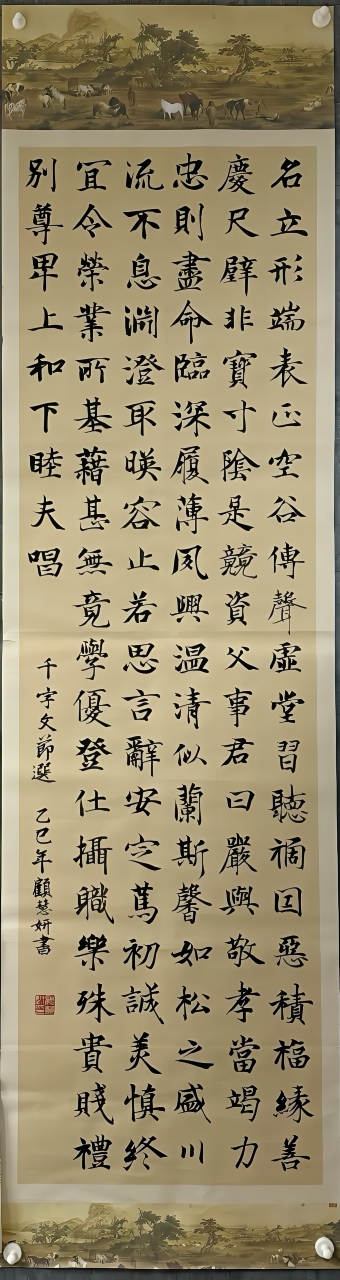 名立形端表正空谷傳聲虛堂習聽禍因惡積福緣善
慶尺璧非寶寸陰是競資父事君曰嚴與敬孝當竭力
忠則盡命臨深履薄夙興温清似蘭斯馨如松之盛川
流不息淵澄取暎容止若思言辭安定篤初誠美慎終
宜令榮業所基藉甚無竟學優登仕攝職樂殊貴賤禮
別尊卑上和下睦夫唱
千字文節選 乙巳年顧慧妍書